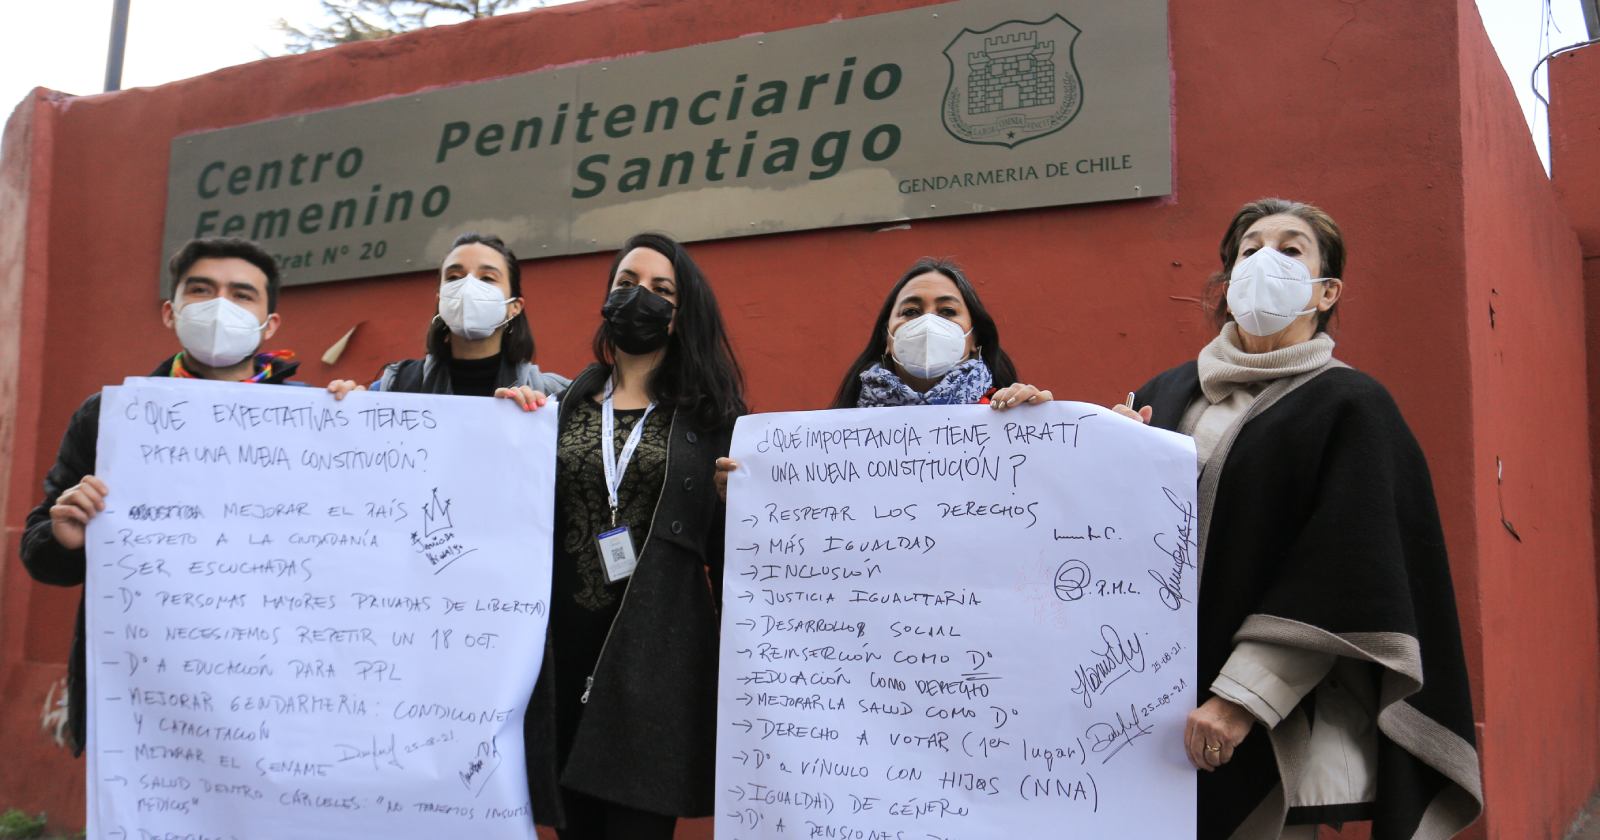 Centro Penitenciario
Femenino Santiago
Prat Nº 20
LABOR OMNIA VINCIT
GENDARMERIA DE CHILE
¿QUÉ EXPECTATIVAS TIENES
PARA UNA NUEVA CONSTITUCIÓN?
- MEJORAR EL PAÍS
- RESPETO A LA CIUDADANÍA
- SER ESCUCHADAS
- Dº PERSONAS MAYORES PRIVADAS DE LIBERTAD
- NO NECESITEMOS REPETIR UN 18 OCT.
- Dº A EDUCACIÓN PARA PPL
- MEJORAR GENDARMERIA: CONDICIONES
Y CAPACITACIÓN
- MEJORAR EL SENAME
25-08-21.
-> SALUD DENTRO CÁRCELES: "NO TENEMOS INSUMOS
MEDICOS"
¿QUÉ IMPORTANCIA TIENE PARA TÍ
UNA NUEVA CONSTITUCIÓN?
-> RESPETAR LOS DERECHOS
-> MÁS IGUALDAD
-> INCLUSIÓN
-> JUSTICIA IGUALITARIA
P.M.L.
-> DESARROLLO SOCIAL
-> REINSERCIÓN COMO Dº
25-08-21.
-> EDUCACIÓN COMO DERECHO
-> MEJORAR LA SALUD COMO Dº
25-08-21
-> DERECHO A VOTAR (1er lugar)
-> Dº a VÍNCULO CON HIJOS (NNA)
-> IGUALDAD DE GÉNERO
-> Dº A PENSIONES